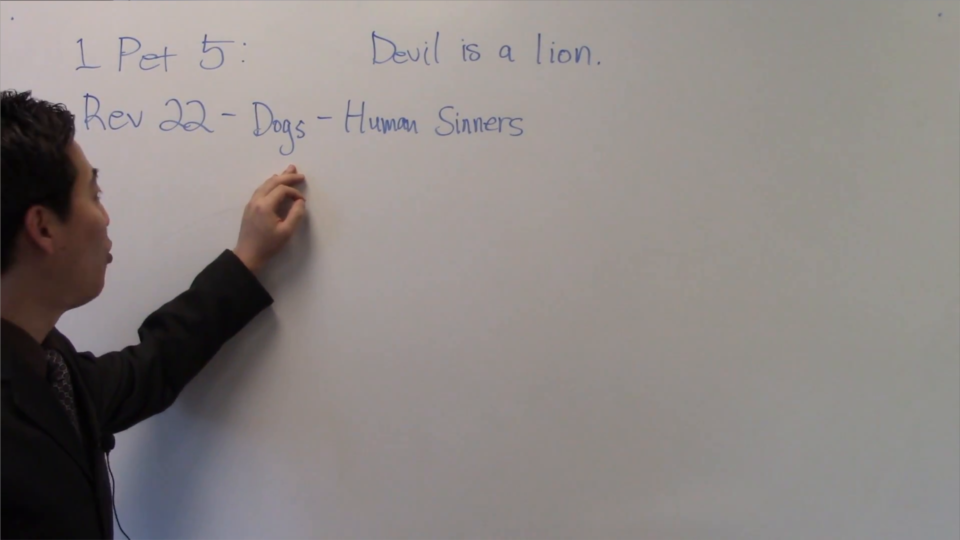 1 Pet 5: Devil is a lion.
Rev 22 - Dogs - Human Sinners